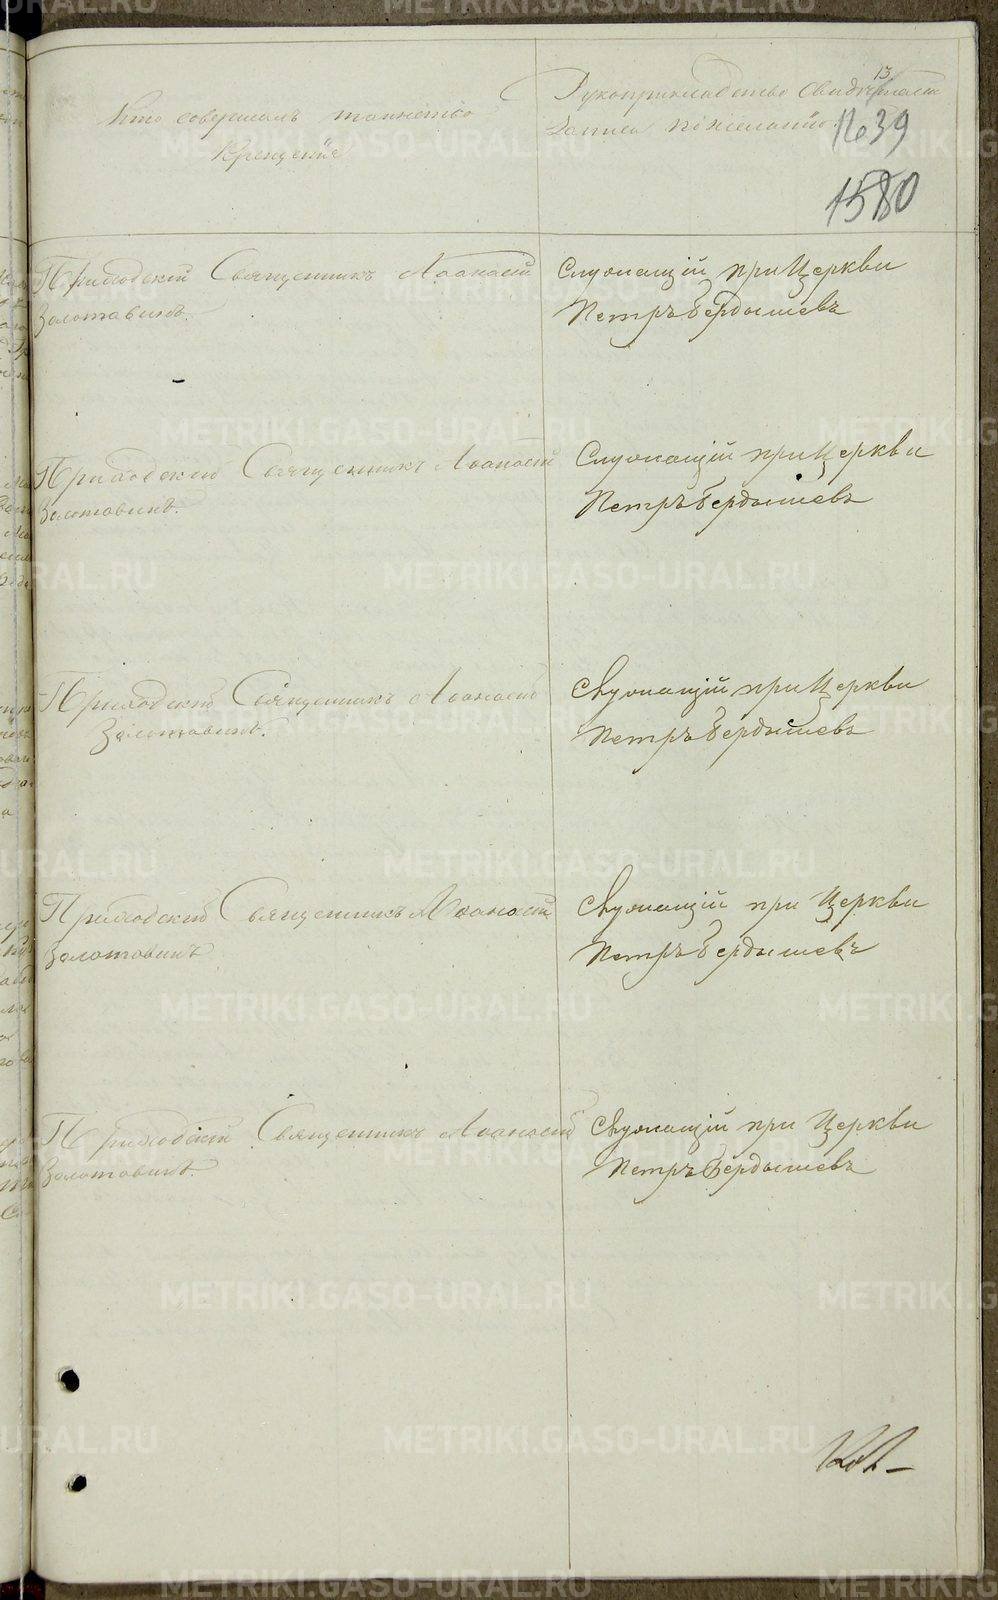 13
Кто совершалъ таинство
Крещенія
Рукоприкладство свидѣтелей
записи по желанію.
№ 39
1580
Приходскій Священникъ Аѳанасій
Золотавинъ.
Служащій при Церкви
Петръ Бердышевъ
Приходскій Священникъ Аѳанасій
Золотавинъ.
Служащій при Церкви
Петръ Бердышевъ
Приходскій Священникъ Аѳанасій
Золотавинъ.
Служащій при Церкви
Петръ Бердышевъ
Приходскій Священникъ Аѳанасій
Золотавинъ
Служащій при Церкви
Петръ Бердышевъ
Приходскій Священникъ Аѳанасій
Золотавинъ
Служащій при Церкви
Петръ Бердышевъ
METRIKI.GASO-URAL.RU